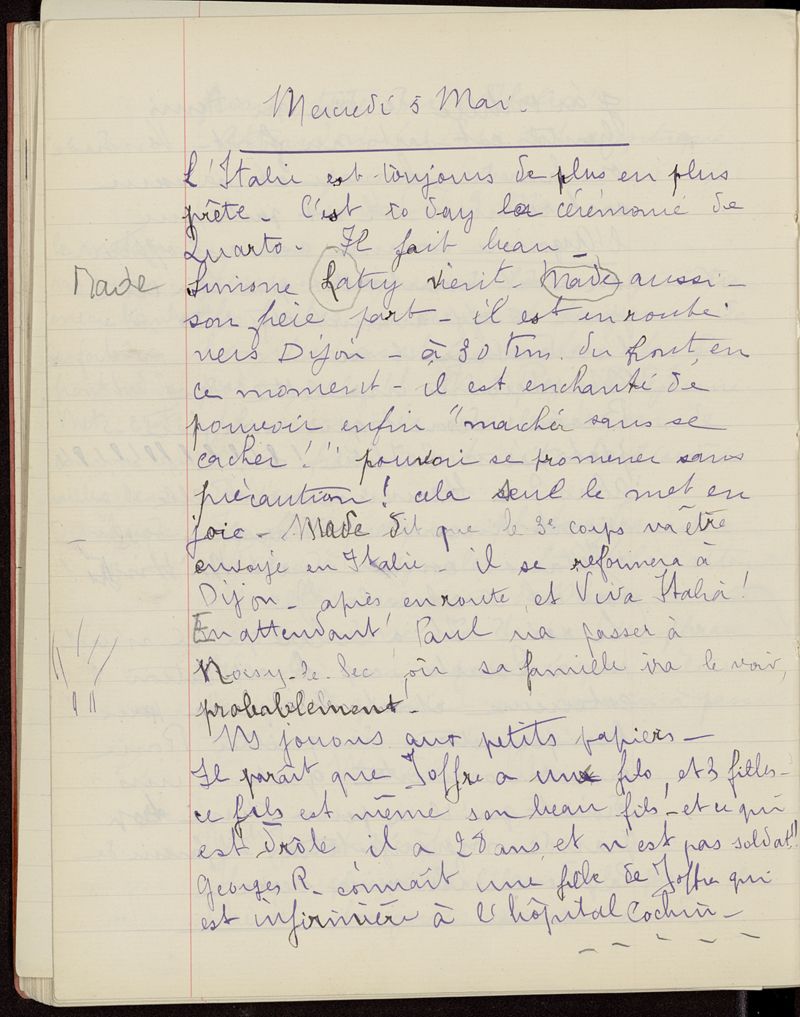 Mercredi 5 Mai.
L'Italie est toujours de plus en plus
prête - C'est to day la cérémonie de
Quarto - Il fait beau
Made
Simone Latry vient - Made aussi -
son frère part - il est en route
vers Dijon - à 30 Km. du front, en
ce moment - il est enchanté de
pouvoir enfin "marcher sans se
cacher!" pouvoir se promener sans
précaution! cela seul le met en
joie - Made dit que le 3e corps va être
envoyé en Italie - il se reformera à
Dijon - après en route, et Viva Italia!
En attendant Paul va passer à
Noisy-le-Sec, où sa famille ira le voir,
probablement -
Ns jouons aux petits papiers -
Il paraît que Joffre a un fils, et 3 filles -
ce fils est même son beau fils - et ce qui
est drôle il a 28 ans, et n'est pas soldat!!
Georges R. connaît une fille de Joffre qui
est infirmière à l'hôpital Cochin -